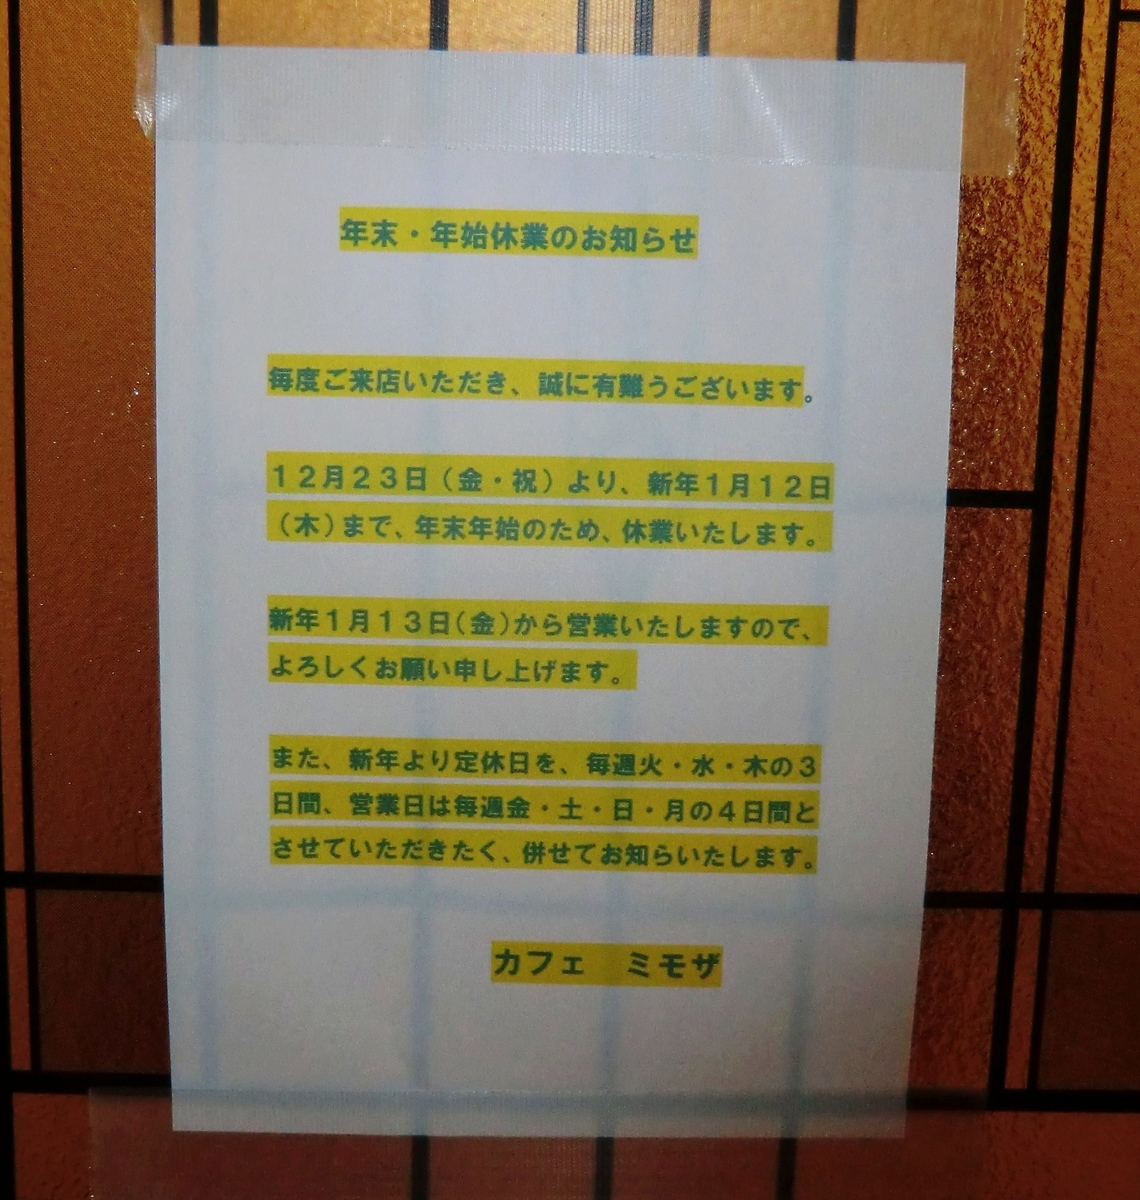 年末・年始休業のお知らせ
毎度ご来店いただき、誠に有難うございます。
１２月２３日（金・祝）より、新年１月１２日
（木）まで、年末年始のため、休業いたします。
新年１月１３日（金）から営業いたしますので、
よろしくお願い申し上げます。
また、新年より定休日を、毎週火・水・木の３
日間、営業日は毎週金・土・日・月の４日間と
させていただきたく、併せてお知らいたします。
カフェ　ミモザ